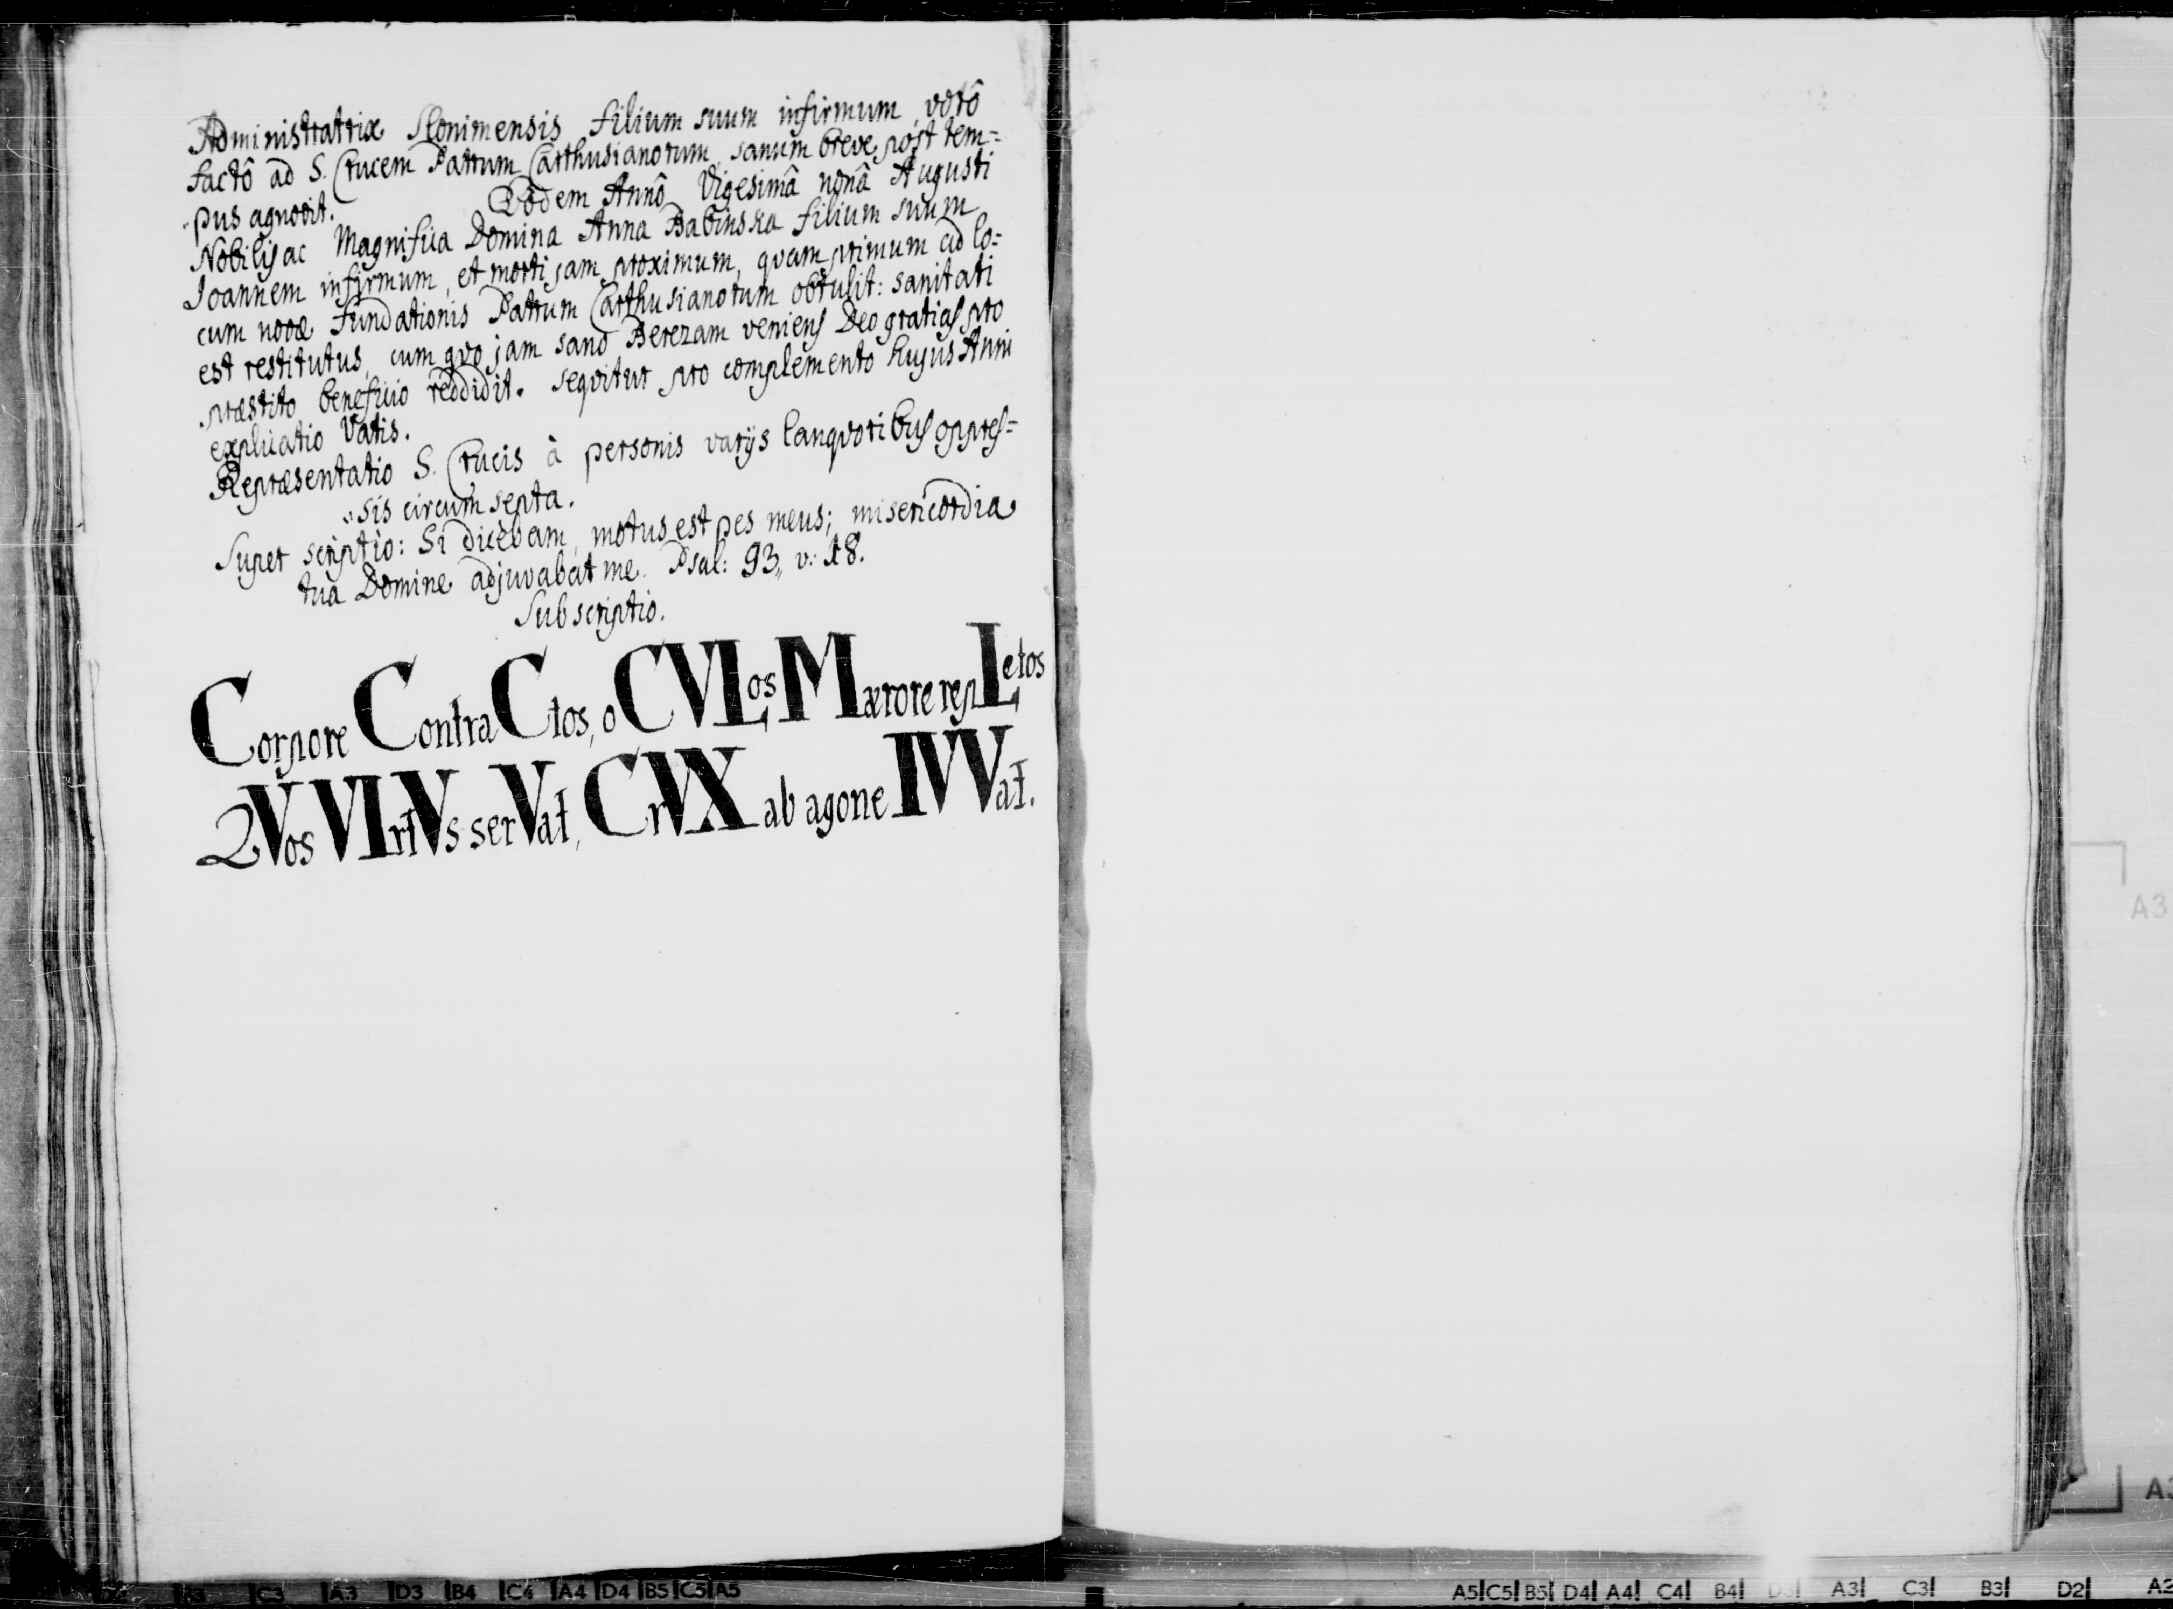 Administratrix Slonimensis filium suum infirmum, votô
factô ad S. Crucem Patrum Carthusianorum, sanum breve post tem=
pus agnovit. Eodem Annô Vigesimâ nonâ Augusti
Nobilis ac Magnifica Domina Anna Babinska filium suum
Ioannem infirmum, et morti jam proximum, quam primum ad lo=
cum novæ Fundationis Patrum Carthusianorum obtulit: sanitati
est restitutus, cum quo jam sano Berezam veniens Deo gratias pro
præstito beneficio reddidit. Sequitur pro complemento hujus Anni
explicatio Vatis.
Repræsentatio S. Crucis à personis varijs languoribus oppres=
sis circumsepta.
Super scriptio: Si dicebam, motus est pes meus; misericordia
tua Domine adjuvabat me. Psal: 93,, v: 18.
Subscriptio.
Corpore ContraCtos, oCVLos MærorerepLetos
QVos VIrtVs serVat, CrVX ab agone IVVat.
A3
A3
C3 A3 D3 B4 C4 A4 D4 B5 C5 A5
A5 C5 B5 D4 A4 C4 B4 D3 A3 C3 B3 D2 A2